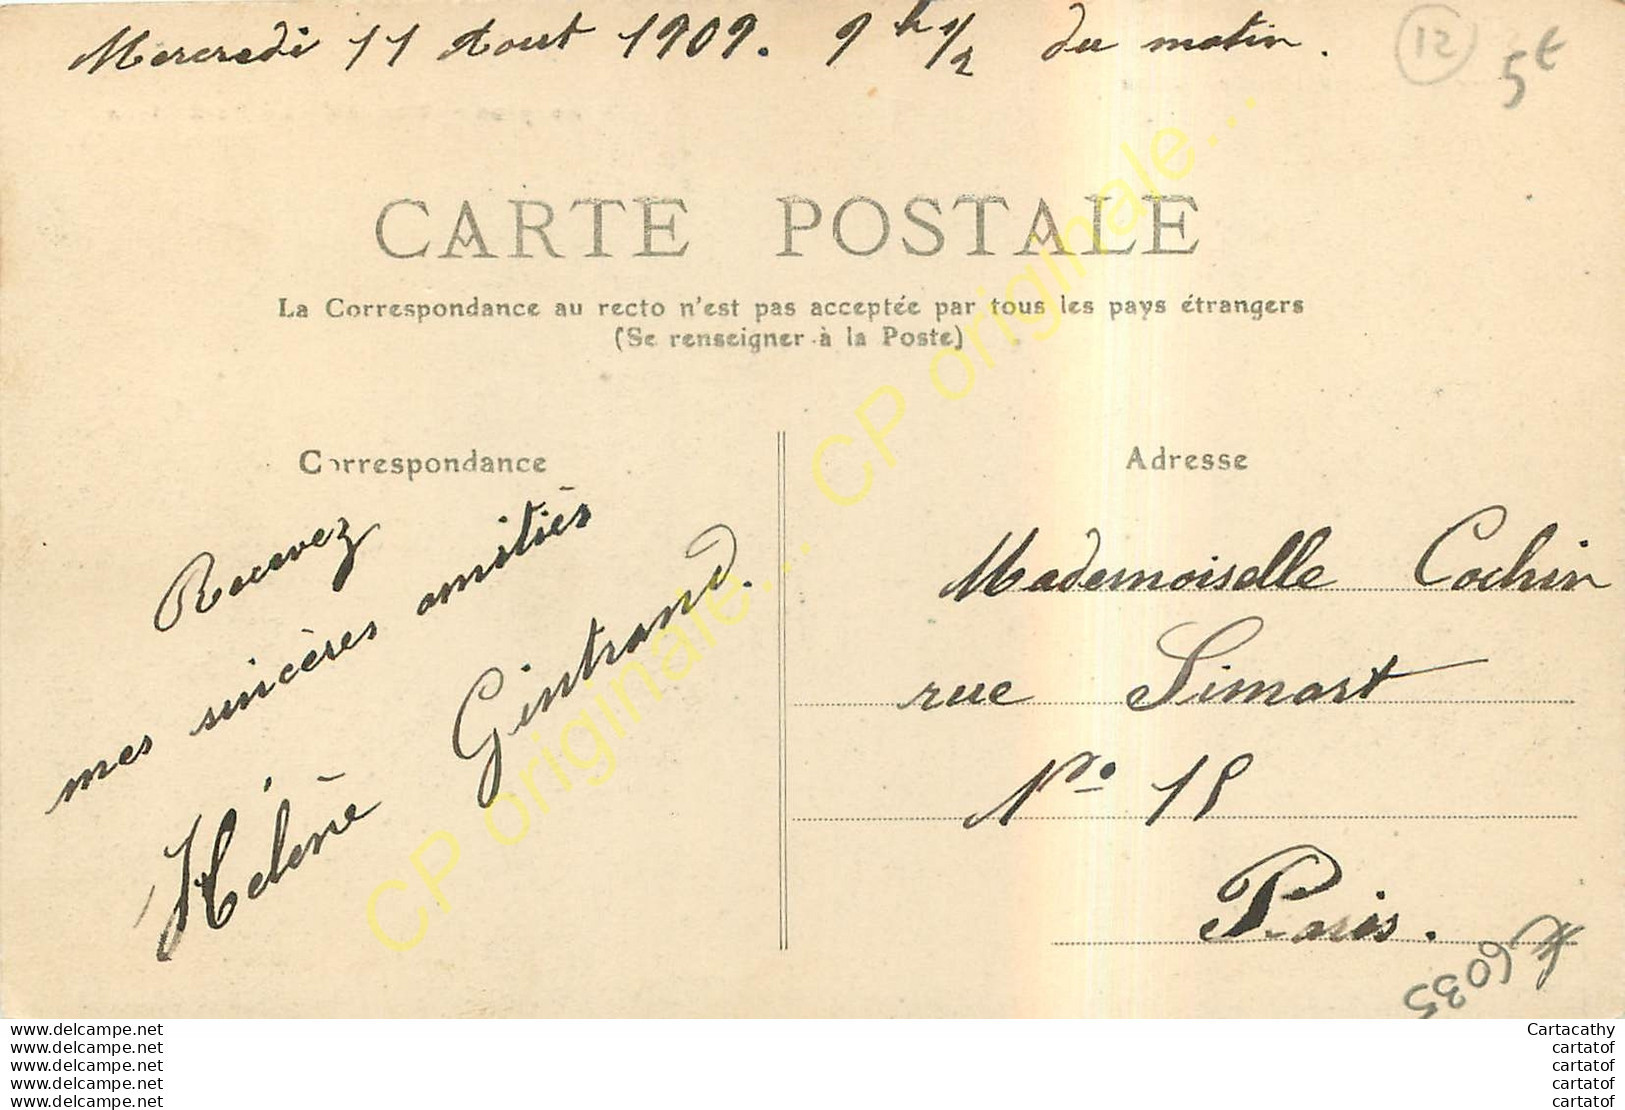 Mercredi 11 Aout 1909. 9 h 1/2 du matin.
12
5€
CARTE POSTALE
La Correspondance au recto n'est pas acceptée par tous les pays étrangers
(Se renseigner à la Poste)
Correspondance
Recevez
mes sincères amitiés
Hélène Gintrand.
Adresse
Mademoiselle Cochin
rue Simart
Nro 15
Paris.
6035
CP originale... CP originale...
www.delcampe.net
www.delcampe.net
www.delcampe.net
www.delcampe.net
www.delcampe.net
Cartacathy
cartatof
cartatof
cartatof
cartatof